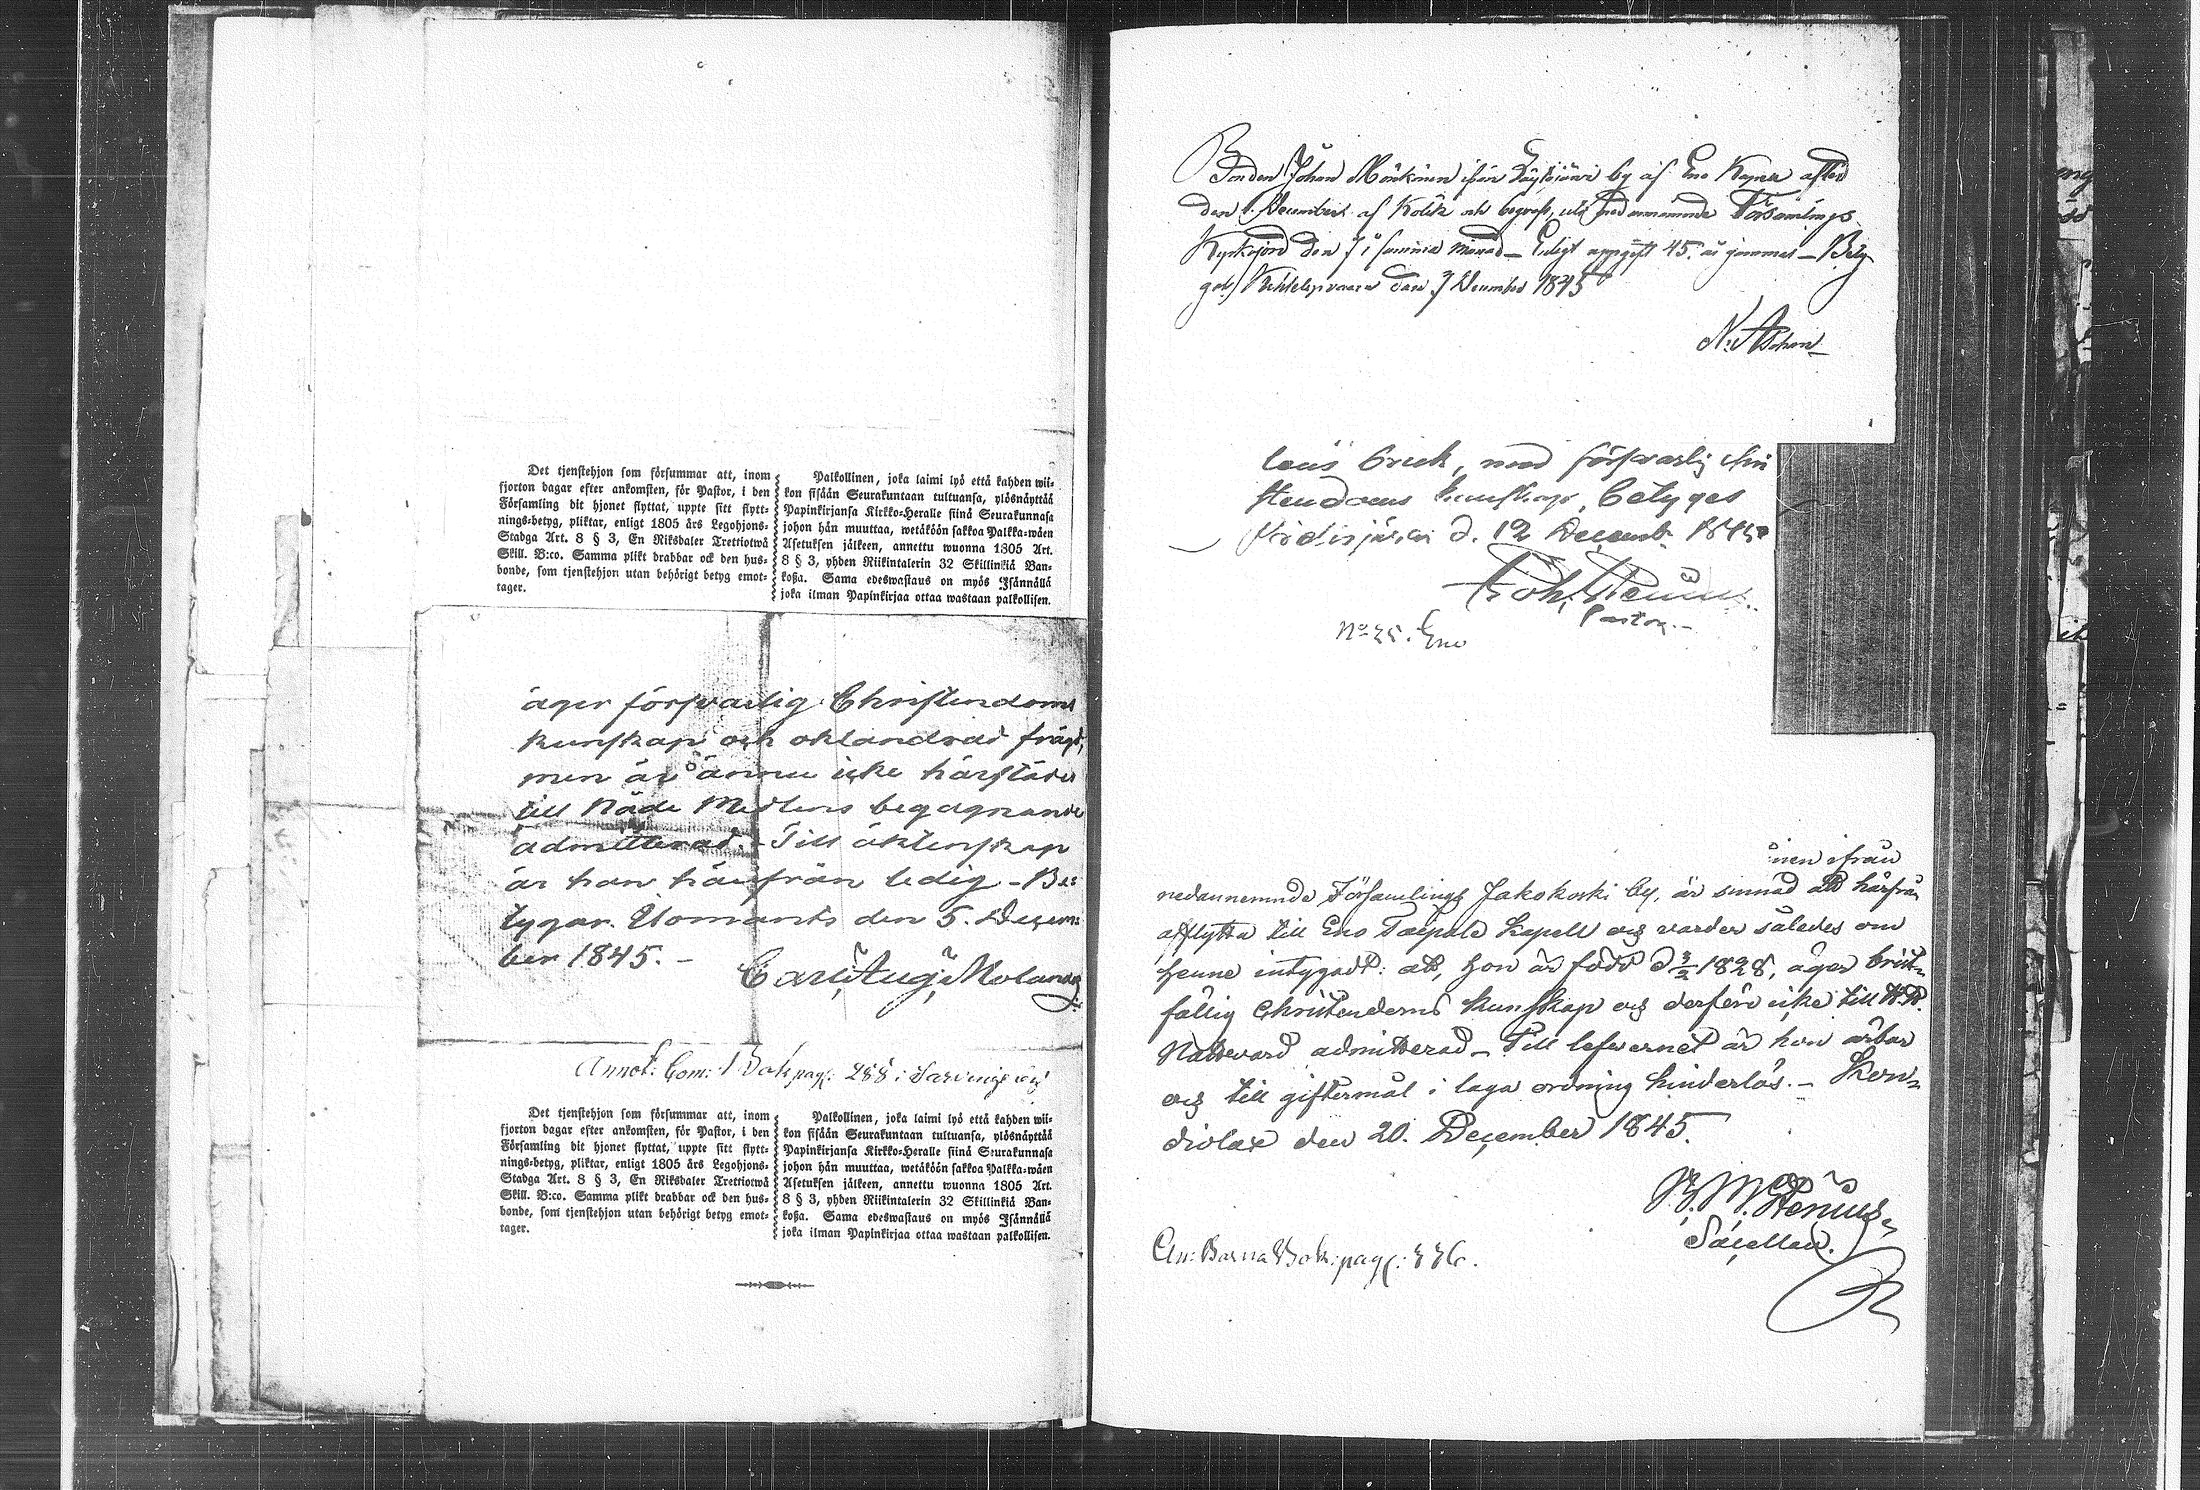 Det tjenstehjon som försummar att, inom
fjorton dagar efter ankomsten, för Pastor, i den
Församling dit hjonet flyttat, uppte sitt flytt-
nings-betyg, pliktar, enligt 1805 års Legohjons-
Stadga Art. 8 § 3, En Riksdaler Trettiotwå
Skill. B:co. Samma plikt drabbar ock den hus-
bonde, som tjenstehjon utan behörigt betyg emot-
tager.
Palkollinen, joka laimi lyö että kahden wii-
kon sisään Seurakuntaan tultuansa, ylösnäyttää
Papinkirjansa Kirkko-Heralle siinä Seurakunnasa
johon hän muuttaa, wetäköön sakkoa Palkka-wäen
Asetuksen jälkeen, annettu wuonna 1805 Art.
8 § 3, yhden Riikintalerin 32 Skillinkiä Ban-
koßa. Sama edeswastaus on myös Isännällä
joka ilman Papinkirjaa ottaa wastaan palkollisen.
äger försvarlig Christendoms
kunskap och oklandrad frägd,
men är ännu icke härstädes
till Nåde Medlens begagnande
admitterad. - Till äktenskap
är han härifrån ledig - Be:
tygar. Ilomants den 5. Decem:
ber 1845. -
Carl Aug: Molander
Annot: Com: Bok pag: 288 i Sarvinge
Det tjenstehjon som försummar att, inom
fjorton dagar efter ankomsten, för Pastor, i den
Församling dit hjonet flyttat, uppte sitt flytt-
nings-betyg, pliktar, enligt 1805 års Legohjons-
Stadga Art. 8 § 3, En Riksdaler Trettiotwå
Skill. B:co. Samma plikt drabbar ock den hus-
bonde, som tjenstehjon utan behörigt betyg emot-
tager.
Palkollinen, joka laimi lyö että kahden wii-
kon sisään Seurakuntaan tultuansa, ylösnäyttää
Papinkirjansa Kirkko-Heralle siinä Seurakunnasa
johon hän muuttaa, wetäköön sakkoa Palkka-wäen
Asetuksen jälkeen, annettu wuonna 1805 Art.
8 § 3, yhden Riikintalerin 32 Skillinkiä Ban-
koßa. Sama edeswastaus on myös Isännällä
joka ilman Papinkirjaa ottaa wastaan palkollisen.
Bonden Johan Mönkönen ifrån by af Eno Kapell afled
den 1. December af Kolik och begrofs uti nedannämnde Församlings
Kyrkojord den 7 i samma månad - Enligt uppgift 45 år gammal - Betyg
gar, Kihtelysvaara den 7 December 1845
N. Aschan
lous Brick, med försvarlig chri
stendoms kunskap, betyges
d. 12 Decemb. 1845
Joh. Stenius
Pastor. -
No 25. Eno
inen ifrån
nedannemnde Församlings Jakokoski by, är sinnad att härfrån
afflytta till Eno Taipale Kapell och varder således om
henne intygadt: att, hon är född d 3/2 1828, äger brist-
fällig Christendoms kunskap och derföre icke till H. H.
Nattvard admitterad - Till lefvernet är hon ärbar
och till giftermål i laga ordning hinderlös. - Kon-
diolax den 20. December 1845.
Stenius
Sacellan.
An: Barna Bok: pag: 336.